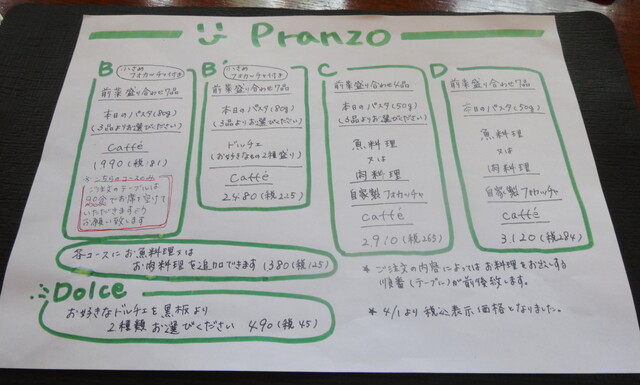 Pranzo
B 小さめ フォカッチャ付き
前菜盛り合わせ7品
本日のパスタ(80g)
(3品よりお選びください)
Caffé
1990(税181)
※こちらのコースのみ
ご注文のテーブルは
90分でお席を空けて
いただきますよう
お願い致します
B' 小さめ フォカッチャ付き
前菜盛り合わせ7品
本日のパスタ(80g)
(3品よりお選びください)
ドルチェ
(お好きなもの2種盛り)
Caffé
2480(税225)
C
前菜盛り合わせ4品
本日のパスタ(50g)
(3品よりお選びください)
魚料理
又は
肉料理
自家製フォカッチャ
Caffé
2910(税265)
D
前菜盛り合わせ7品
本日のパスタ(50g)
魚料理
又は
肉料理
自家製フォカッチャ
Caffé
3.120(税284)
各コースにお魚料理又は
お肉料理を追加できます 1380(税125)
Dolce
お好きなドルチェを黒板より
2種類お選びください 490(税45)
*ご注文の内容によってはお料理をお出しする
順番(テーブル)が前後致します。
*4/1より税込表示価格となりました。